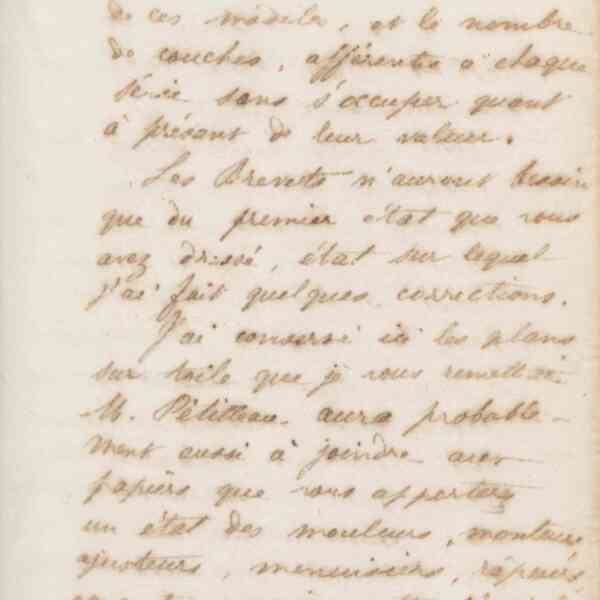 de ces modèles, et le nombre
de couches, afférentes à chaque
série sans s'occuper quant
à présent de leur valeur.
Les Brevets n'auront besoin
que du premier état que vous
avez dressé, état sur lequel
j'ai fait quelques corrections.
J'ai conservé ici les plans
sur toile que je vous remettrai.
M. Petitteau aura probable-
ment aussi à joindre aux
papiers que vous apportez
un état des mouleurs, monteurs
ajusteurs, menuisiers,